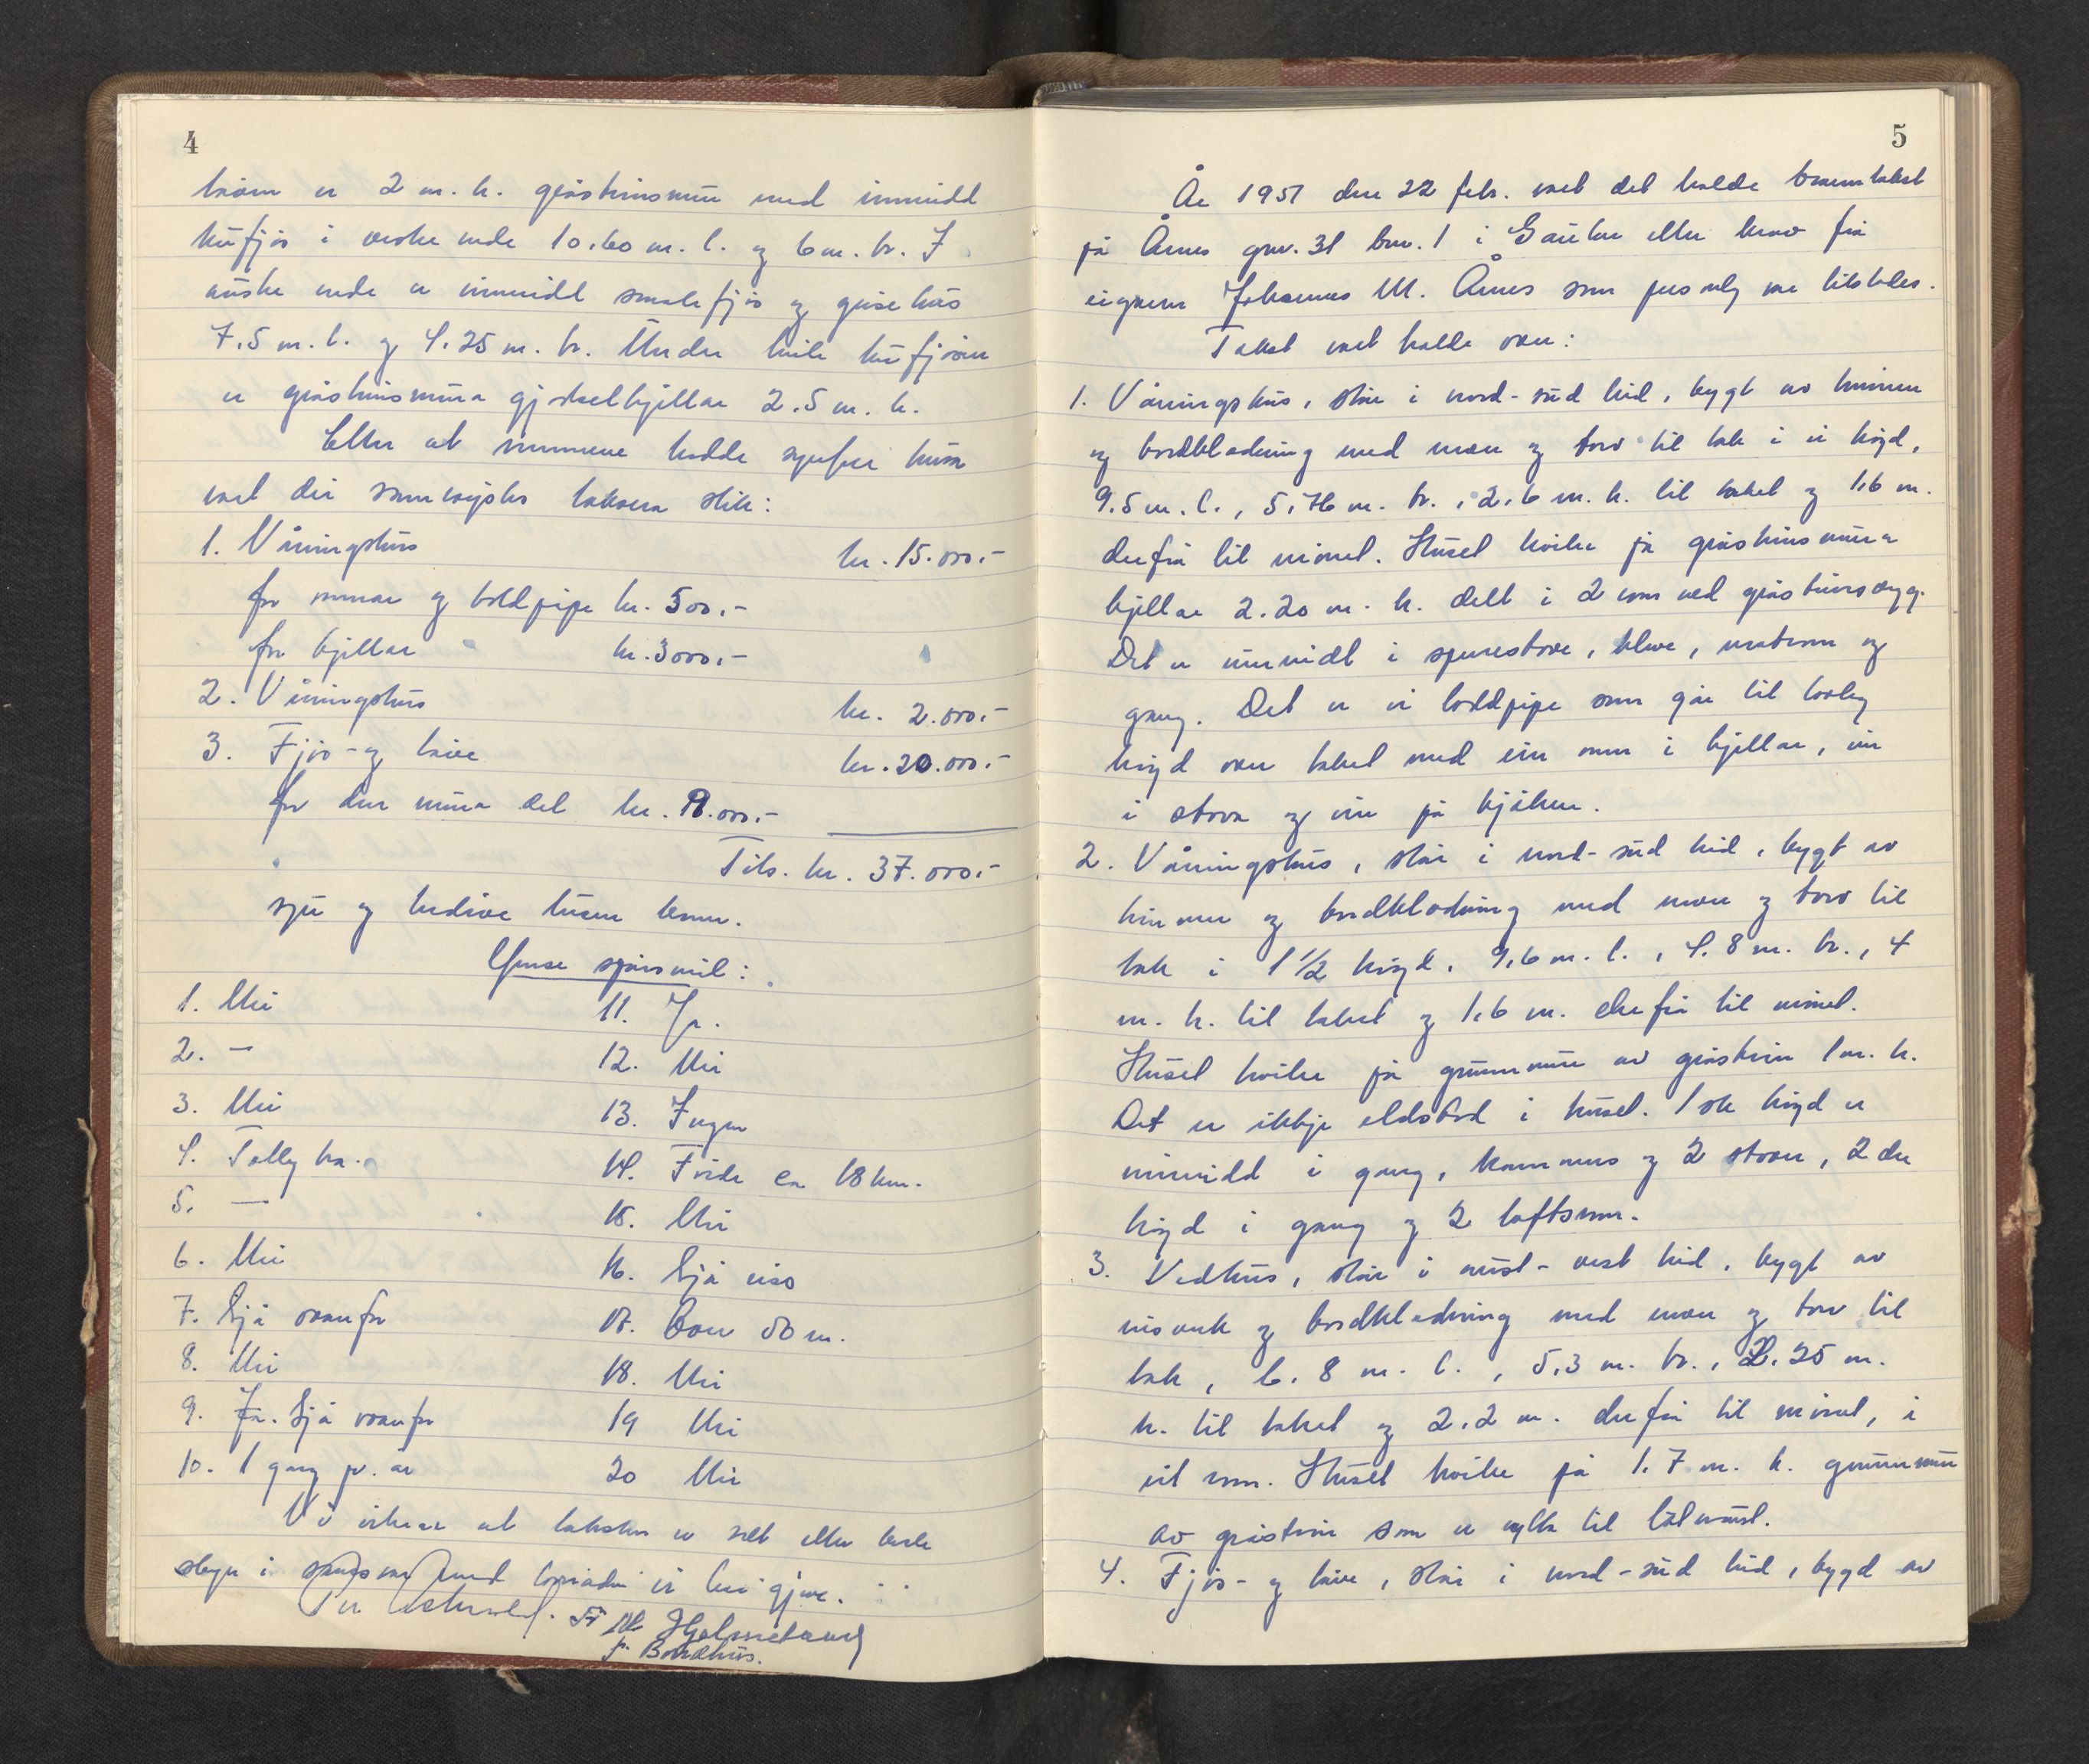 4
er 2 m. h. gråsteinsmur med innreidd
kufjøs i vestre ende 10.60 m. l. og 6 m. br. I
austre ende er innreidd smalefjøs og grisehus
7.5 m. l. og 4.25 m. br. Under heile kufjøsen
er gråsteinsmura gjødselkjellar 2.5 m. h.
Etter at mennene hadde synfare husa
vart dei samrøystes taksera slik:
1. Våningshus kr. 15.000.-
for omnar og boldpipe kr. 500.-
for kjellar kr. 3000.-
2. Våningshus kr. 2.000.-
3. Fjøs- og løve kr. 20.000.-
for den mura del kr. 8.000.-
Tils. kr. 37.000.-
sju og tredive tusen kroner.
Ymse spørsmål:
1. Nei
2. —
3. Nei
4. Tolleg bra.
5. —
6. Nei
7. Sjå ovanfor
8. Nei
9. Ja. Sjå ovanfor
10. 1 gang pr. år
11. Ja.
12. Nei
13. Ingen
14. Førde ca 18 km.
15. Nei
16. Sjå riss
17. Over 50 m.
18. Nei
19 Nei
20 Nei
Vi at taksten er sett etter beste
skyn i samsvar med vi her gjeve.
Hjelmeland
5
År 1951 den 22 febr. vart det halde branntakst
på Årnes gnr. 31 bnr. 1 i Gaular etter krav frå
eigaren Johannes M. Årnes som personleg var tilstades.
Takst vart halde over:
1. Våningshus, står i nord-sud leid, bygt av timmer
og bordkledning med never og torv til tak i ei høgd,
9.5 m. l., 5.76 m. br., 2.6 m. h. til taket og 1.6 m.
derfrå til mønet. Huset kviler på gråsteinsmura
kjellar 2.20 m. h. delt i 2 rom ved gråsteinsvegg.
Det er innreidt i sperrestove, kleve, matrom og
gang. Det er ei boldpipe som går til lovleg
høgd over taket med ein omn i kjellar, ein
i stova og ein på kjøken.
2. Våningshus, står i nord-sud leid, bygt av
timmer og bordkledning med never og torv til
tak i 1 1/2 høgd, 9.6 m. l., 4.8 m. br., 4
m. h. til taket og 1.6 m. derfrå til mønet.
Huset kviler på grunnmur av gråstein 1 m. h.
Det er ikkje eldstad i huset. 1ste høgd er
innreidd i gang, kammers og 2 stover, 2 dre
høgd i gang og 2 loftsrom.
3. Vedhus, står i aust-vest leid, bygt av
reisverk og bordkledning med never og torv til
tak, 6.8 m. l., 5.3 m. br., 2.25 m.
h. til taket og 2.2 m. derfrå til mønet, i
eit rom. Huset kviler på 1.7 m. h. grunnmur
av gråstein som er nytta til
4. Fjøs- og løve, står i nord-sud leid, bygd av